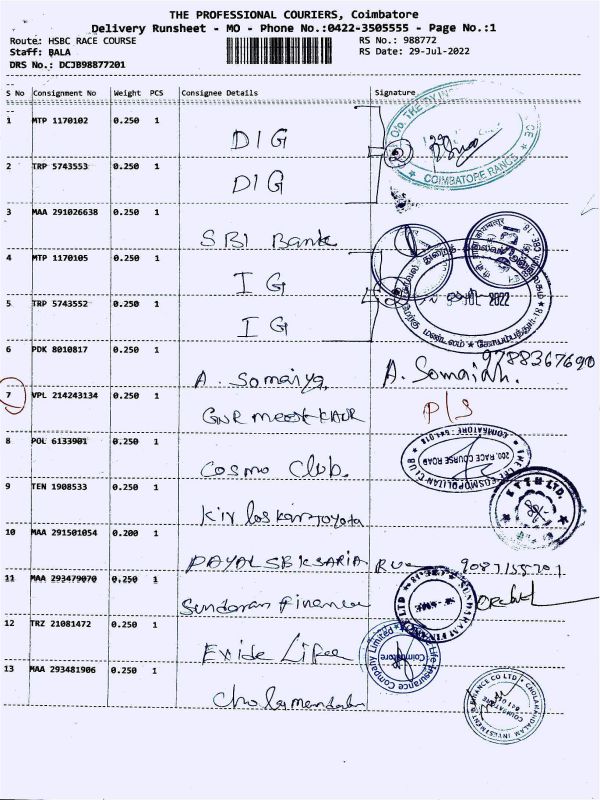 THE PROFESSIONAL COURIERS, Coimbatore
Delivery Runsheet - MO - Phone No.:0422-3505555 - Page No.:1
Route: HSBC RACE COURSE RS No.: 988772
Staff: BALA RS Date: 29-Jul-2022
DRS No.: DCJB98877201
S No Consignment No Weight PCS Consignee Details Signature
1 MTP 1170102 0.250 1 DIG
2 TRP 5743553 0.250 1 DIG
COIMBATORE RANGE
3 MAA 291026638 0.250 1 SBI Bank
4 MTP 1170105 0.250 1 IG
5 TRP 5743552 0.250 1 IG
2022
6 PDK 8010817 0.250 1 A. Somaiya A. Somaiah. 9788367690
7 VPL 214243134 0.250 1 P/S
8 POL 6133901 0.250 1 Cosmo Club
COSMOPOLITAN CLUB
200, RACE COURSE ROAD
COIMBATORE - 641 018
9 TEN 1908533 0.250 1 Kirloskar Toyota
10 MAA 291501054 0.200 1 PAYAL
11 MAA 293479070 0.250 1 Sundaram Finance
12 TRZ 21081472 0.250 1 Exide Life
Life Insurance Company Limited
Coimbatore
13 MAA 293481906 0.250 1
CHOLAMANDALAM INVESTMENT & FINANCE CO LTD